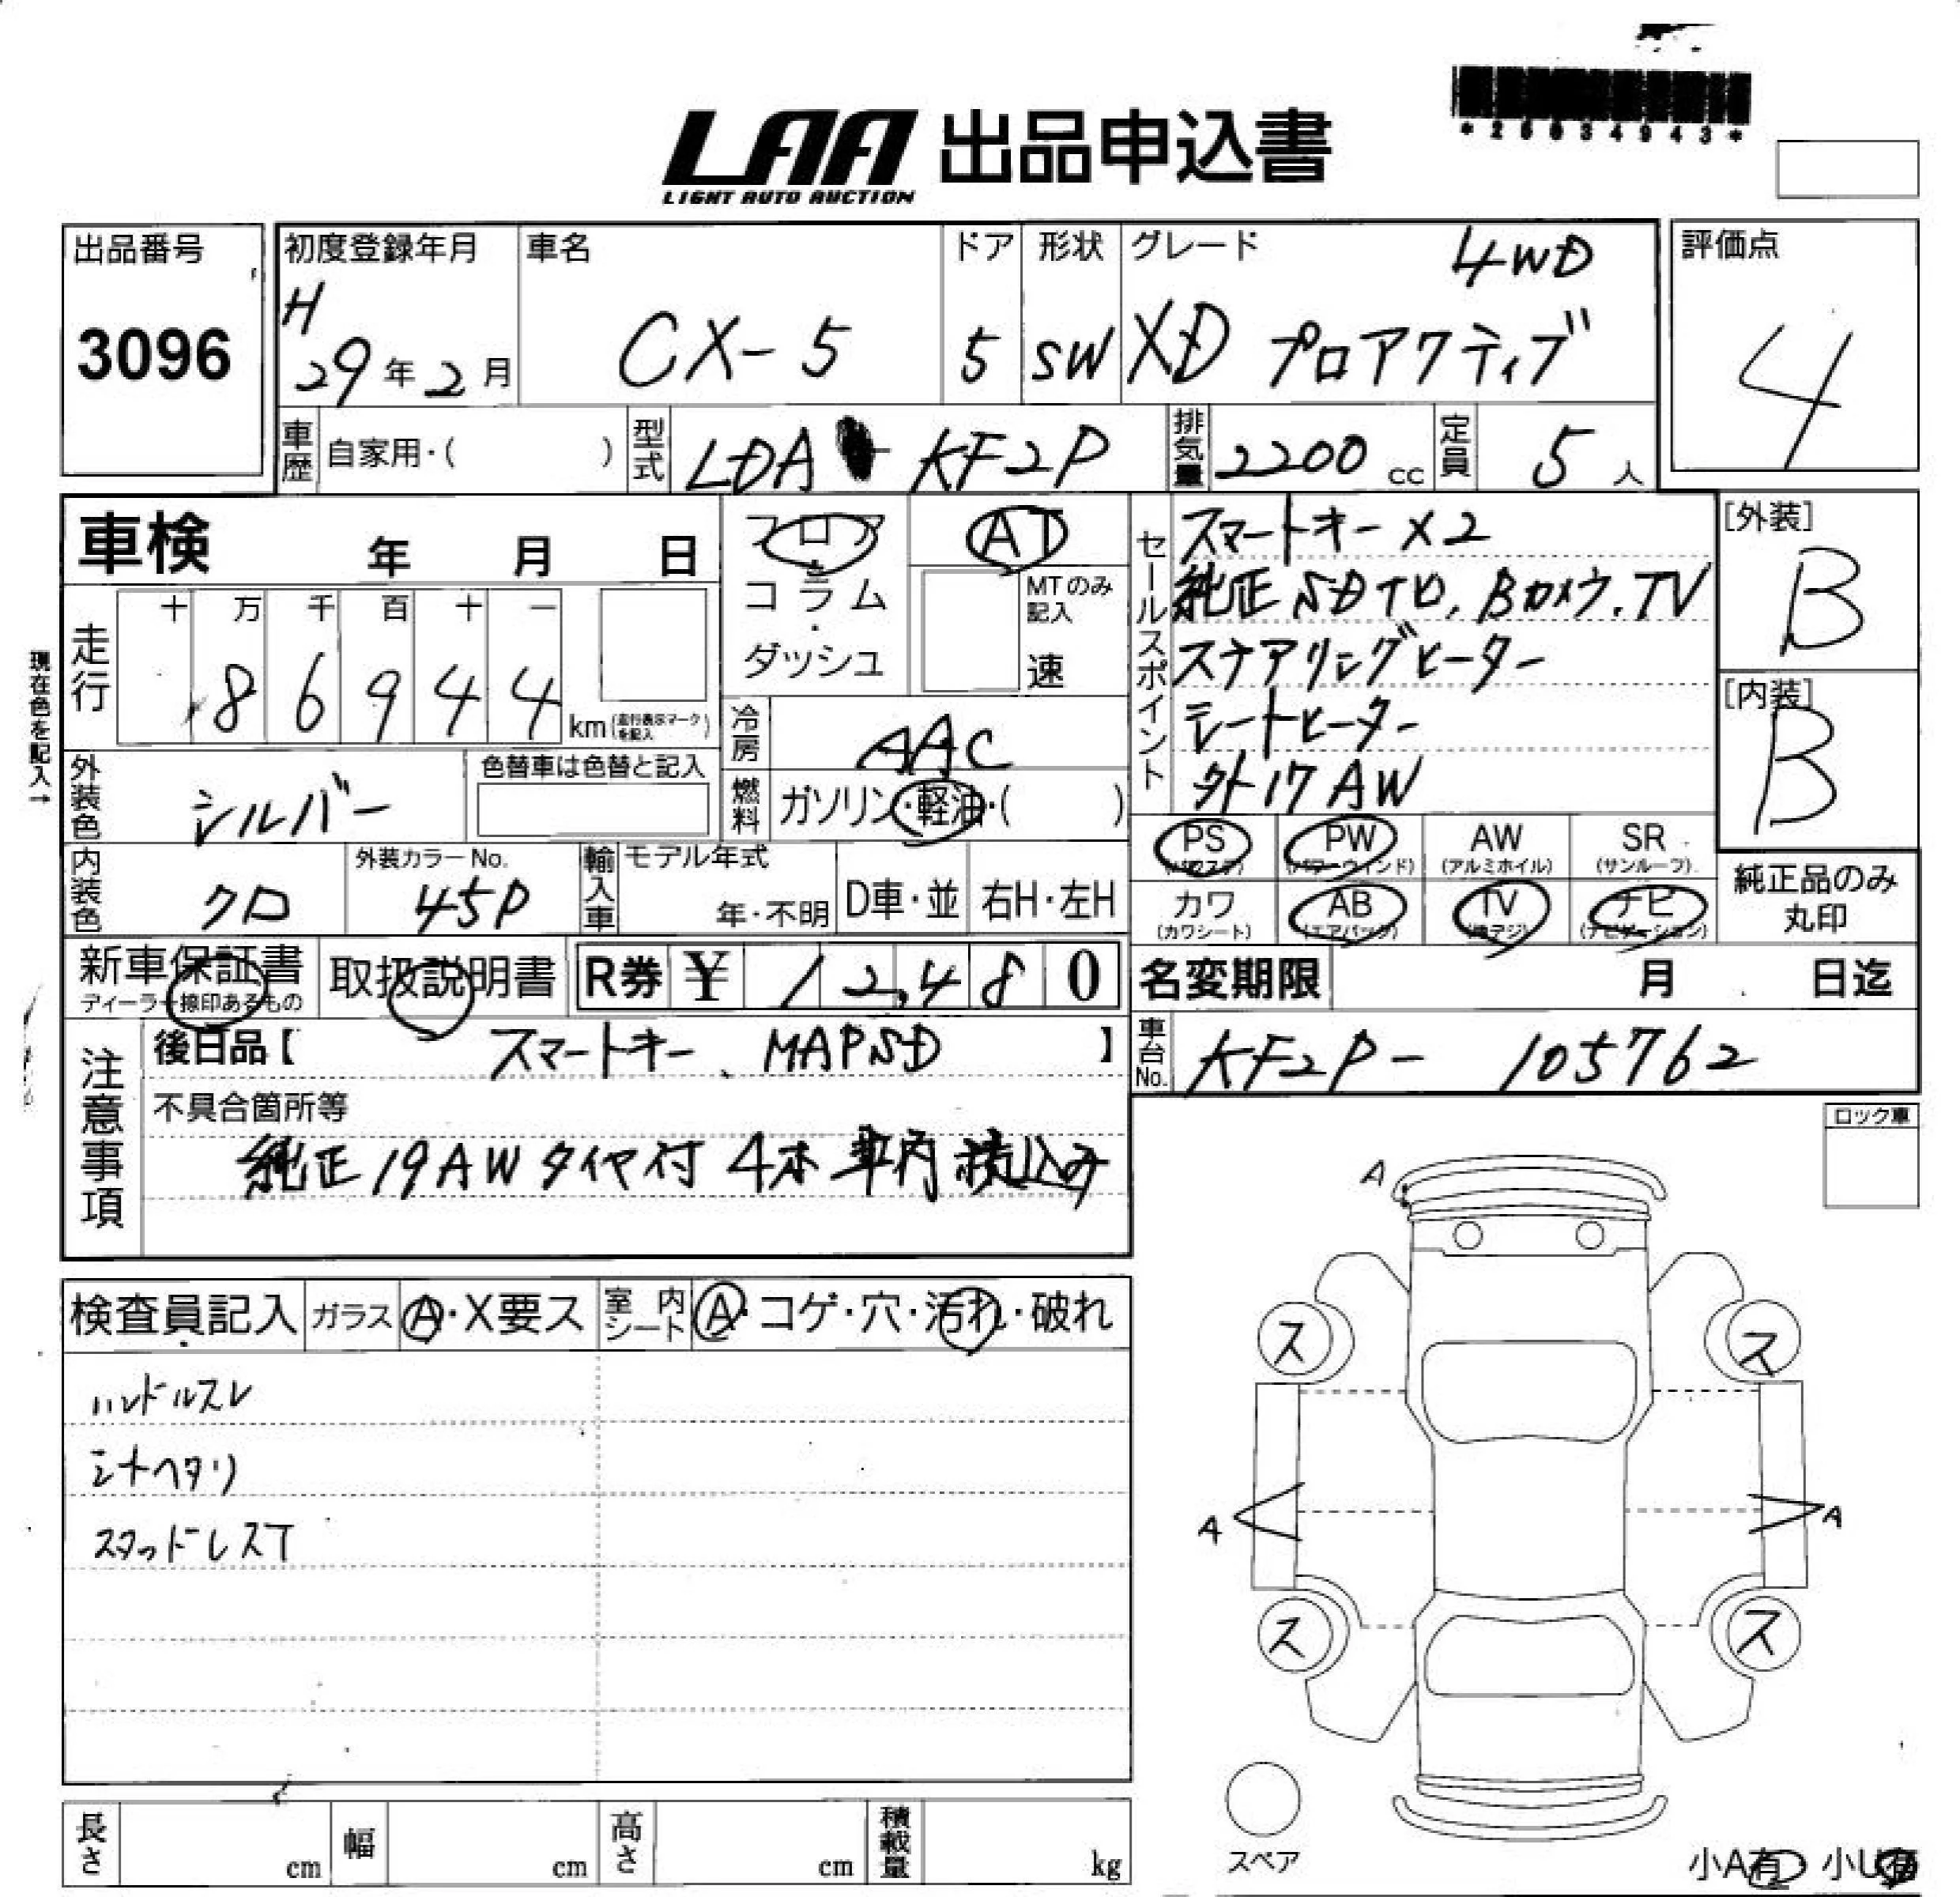 *25034943*
LAA 出品申込書
LIGHT AUTO AUCTION
出品番号
3096
初度登録年月
H
29年2月
車名
CX-5
ドア
5
形状
SW
グレード
4WD
XD プロアクティブ
評価点
4
車歴 自家用・( )
型式 LDA - KF2P
排気量 2200 cc
定員 5 人
車検 年 月 日
現在色を記入→
走行
十 万 千 百 十 一
8 6 9 4 4
km (走行表示マークを記入)
フロア
コラム
・
ダッシュ
AT
MTのみ記入
速
冷房 AAC
燃料 ガソリン・軽油・( )
外装色 シルバー
色替車は色替と記入
内装色 クロ
外装カラーNo.
45P
輸入車
モデル年式
年・不明
D車・並
右H・左H
セールスポイント
スマートキー×2
純正SDナビ,Bカメラ.TV
ステアリングヒーター
シートヒーター
外17AW
[外装]
B
[内装]
B
PS
(パワステ)
PW
(パワーウィンド)
AW
(アルミホイル)
SR
(サンルーフ)
カワ
(カワシート)
AB
(エアバック)
TV
(地デジ)
ナビ
(ナビゲーション)
純正品のみ
丸印
新車保証書
ディーラー捺印あるもの
取扱説明書
R券 ¥ 12,480
名変期限 月 日迄
注意事項
後日品【 スマートキー、MAPSD 】
車台No. KF2P- 105762
不具合箇所等
純正19AWタイヤ付 4本 車内積込み
ロック車
検査員記入
ガラス A・X要ス
室内シート A・コゲ・穴・汚れ・破れ
ハンドルスレ
シートヘタリ
スタッドレスT
A
ス
ス
A
A
ス
ス
スペア
小A有・小U有
長さ cm
幅 cm
高さ cm
積載量 kg